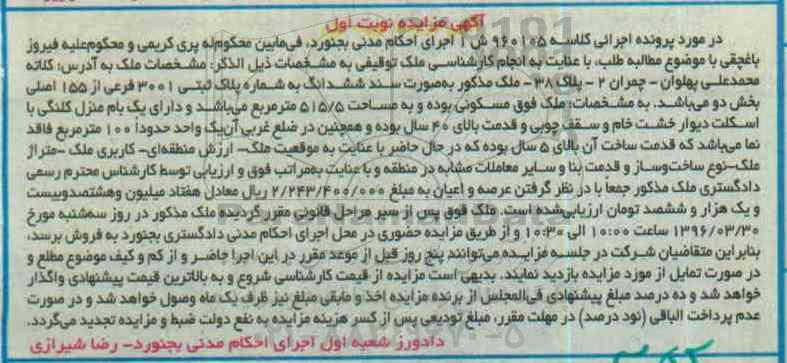 آگهی مزایده نوبت اول
در مورد پرونده اجرائی کلاسه ۹۶۰۱۰۵ ش ا اجرای احکام مدنی بجنورد، فی‌مابین محکوم‌له پری کریمی و محکوم‌علیه فیروز
باغچقی با موضوع مطالبه طلب، با عنایت به انجام کارشناسی ملک توقیفی به مشخصات ذیل الذکر: مشخصات ملک به آدرس: کلاته
محمدعلی پهلوان - چمران ۲ - پلاک ۳۸- ملک مذکور به‌صورت سند ششدانگ به شماره پلاک ثبتی ۳۰۰۱ فرعی از ۱۵۵ اصلی
بخش دو می‌باشد. به مشخصات: ملک فوق مسکونی بوده و به مساحت ۵۱۵/۵ مترمربع می‌باشد و دارای یک بام منزل کلنگی با
اسکلت دیوار خشت خام و سقف چوبی و قدمت بالای ۴۰ سال بوده و همچنین در ضلع غربی آن‌یک واحد حدوداً ۱۰۰ مترمربع فاقد
نما می‌باشد که قدمت ساخت آن بالای ۵ سال بوده که در حال حاضر با عنایت به موقعیت ملک- ارزش منطقه‌ای- کاربری ملک -متراژ
ملک-نوع ساخت‌وساز و قدمت بنا و سایر معاملات مشابه در منطقه و با عنایت به‌مراتب فوق و ارزیابی توسط کارشناس محترم رسمی
دادگستری ملک مذکور جمعاً با در نظر گرفتن عرصه و اعیان به مبلغ ۲/۲۴۳/۴۰۰/۰۰۰ ریال معادل هفتاد میلیون وهشتصدوبیست
و یک هزار و ششصد تومان ارزیابی‌شده است. ملک فوق پس از سیر مراحل قانونی مقرر گردیده ملک مذکور در روز سه‌شنبه مورخ
۱۳۹۶/۰۳/۳۰ ساعت ۱۰:۰۰ الی ۱۰:۳۰ و از طریق مزایده حضوری در محل اجرای احکام مدنی دادگستری بجنورد به فروش برسد،
بنابراین متقاضیان شرکت در جلسه مزایده می‌توانند پنج روز قبل از موعد مقرر در این اجرا حاضر و از کم و کیف موضوع مطلع و
در صورت تمایل از مورد مزایده بازدید نمایند. بدیهی است مزایده از قیمت کارشناسی شروع و به بالاترین قیمت پیشنهادی واگذار
خواهد شد و ده درصد مبلغ پیشنهادی فی‌المجلس از برنده مزایده اخذ و مابقی مبلغ نیز ظرف یک ماه وصول خواهد شد و در صورت
عدم پرداخت الباقی (نود درصد) در مهلت مقرر، مبلغ تودیعی پس از کسر هزینه مزایده به نفع دولت ضبط و مزایده تجدید می‌گردد.
دادورز شعبه اول اجرای احکام مدنی بجنورد- رضا شیرازی